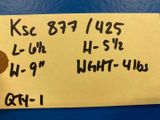 Ksc 877/425
L-6½ H-5½
W-9" WGHT-4lbs
QTY-1